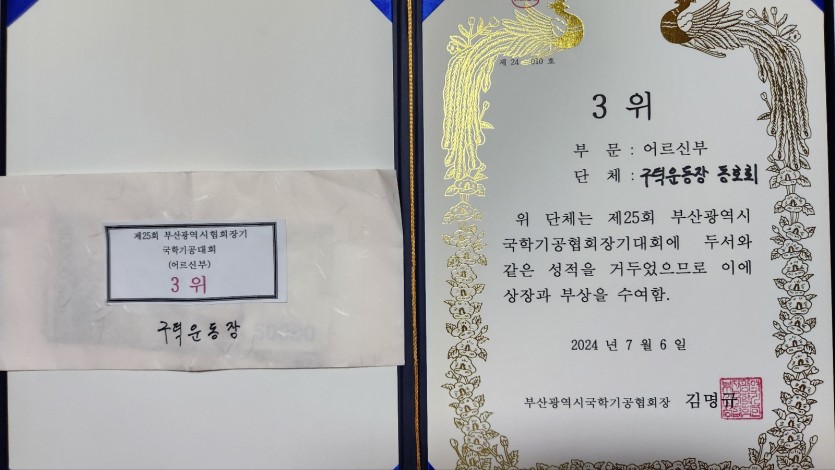 제25회 부산광역시협회장기
국학기공대회
(어르신부)
3 위
구덕운동장
제 24 010 호
3 위
부 문 : 어르신부
단 체 : 구덕운동장 동호회
위 단체는 제25회 부산광역시
국학기공협회장기대회에 두서와
같은 성적을 거두었으므로 이에
상장과 부상을 수여함.
2024 년 7 월 6 일
부산광역시국학기공협회장 김명규